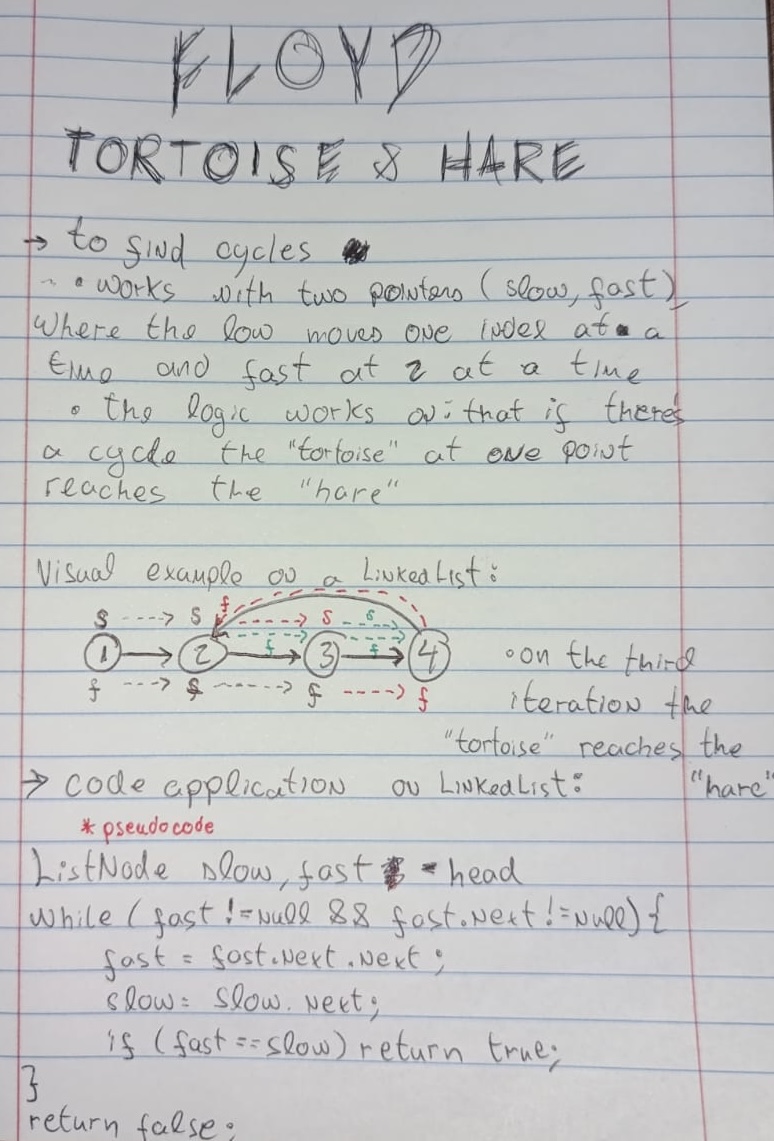 FLOYD
TORTOISE & HARE
→ to find cycles
• works with two pointers (slow, fast)
where the low moves one index at a
time and fast at 2 at a time
• the logic works on: that if there's
a cycle the "tortoise" at one point
reaches the "hare"
Visual example on a LinkedList:
s ---> s f ---> s --s-->
1 → 2 f → 3 f → 4
f ---> f ---> f ---> f
• on the third
iteration the
"tortoise" reaches the
"hare"
→ code application on LinkedList:
* pseudocode
ListNode slow, fast = head
while (fast != null && fast.next != null) {
fast = fast.next.next;
slow = slow.next;
if (fast == slow) return true;
}
return false;